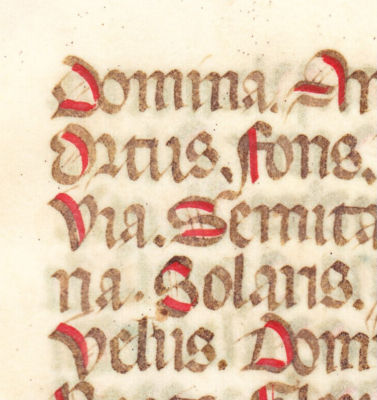 Domina. An
Ortus. fons.
Via. Semita
na. Solaris.
Velus. Dom